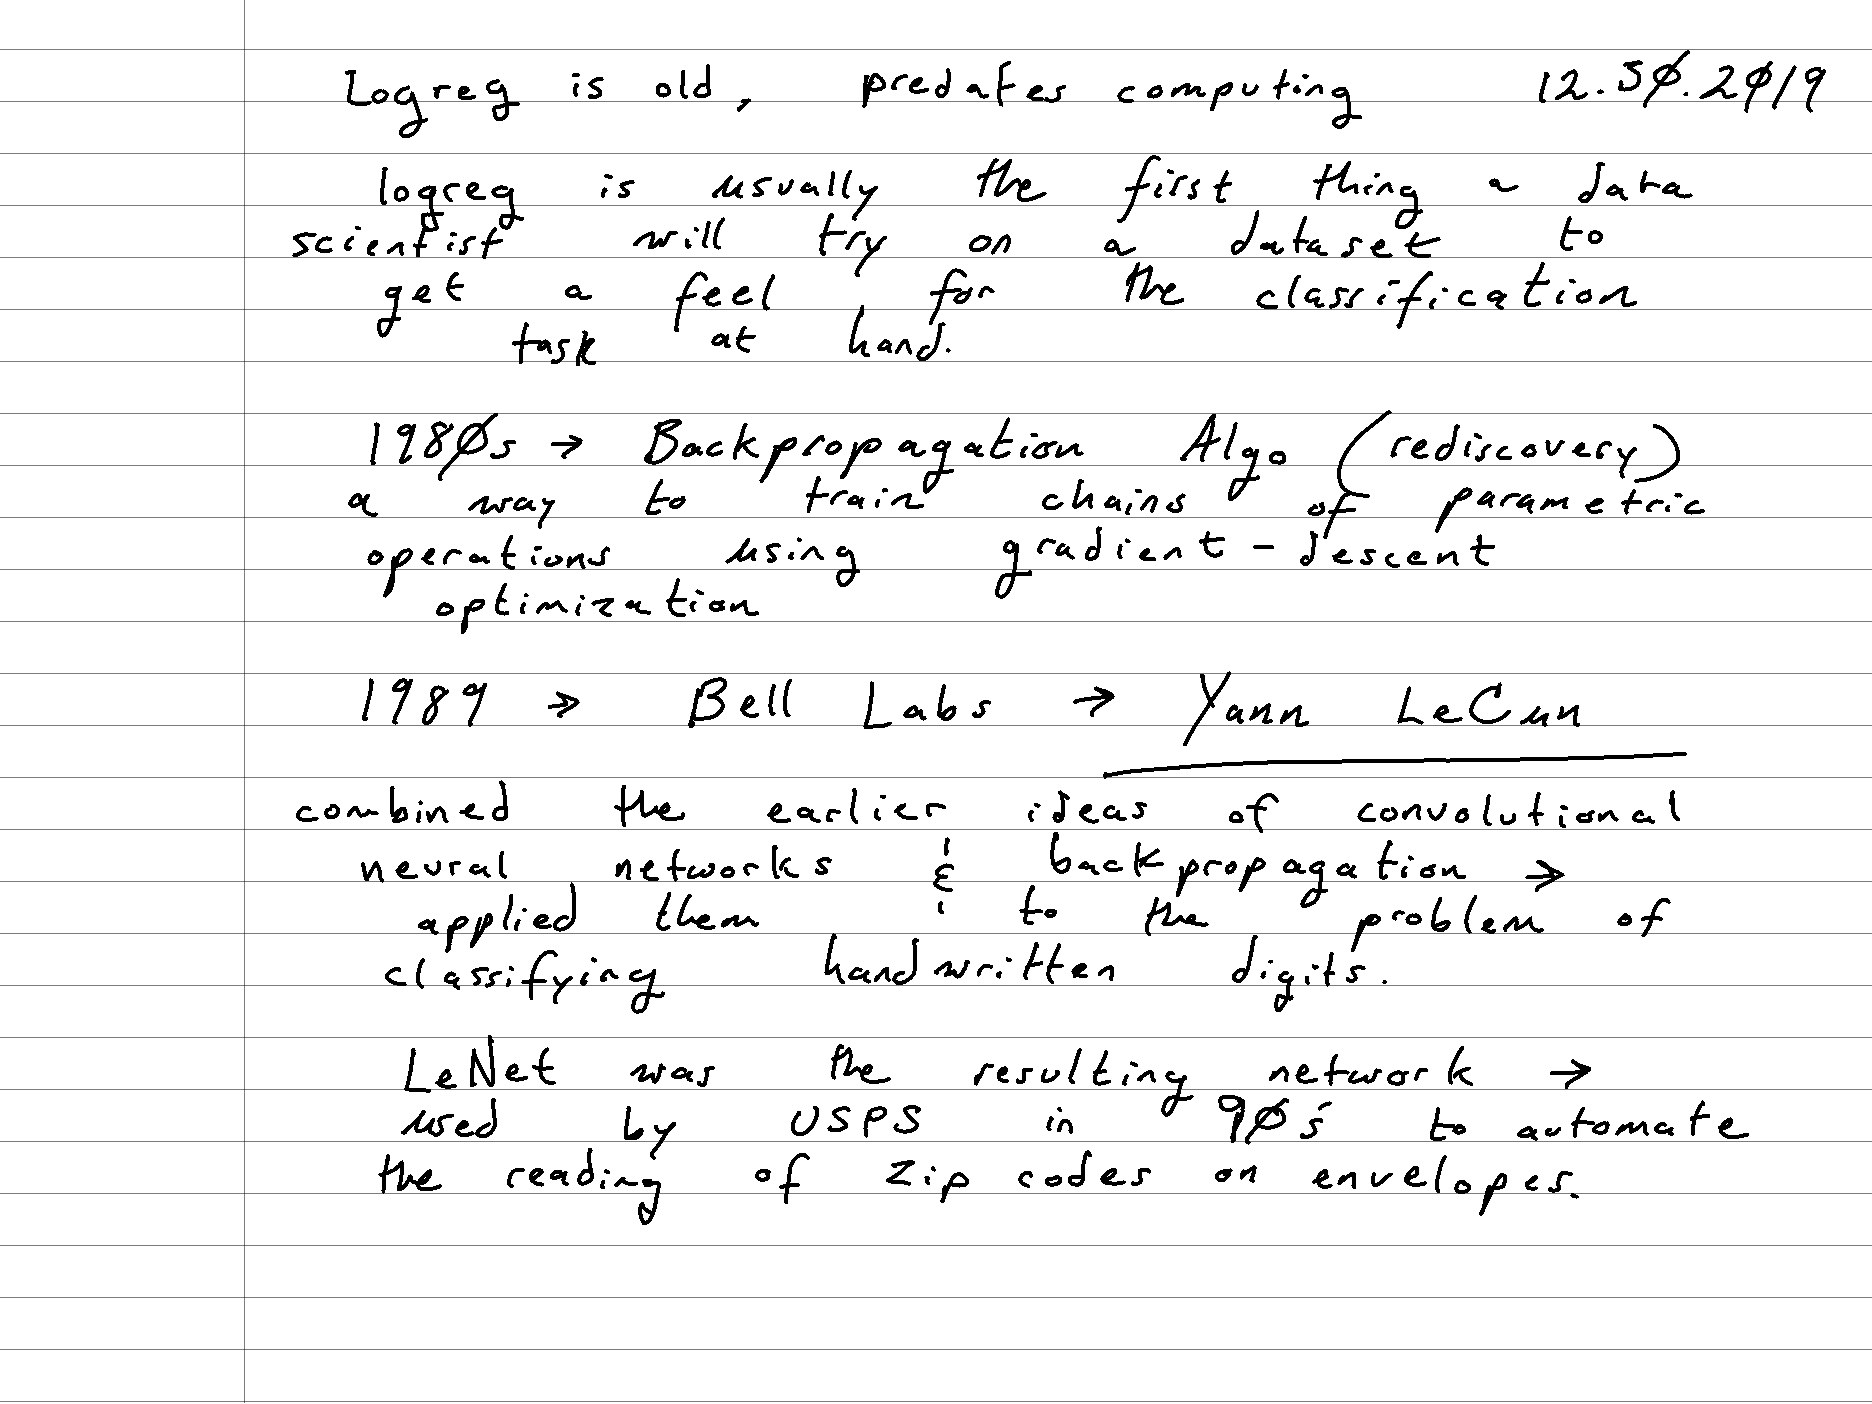 Logreg is old, predates computing 12.30.2019
logreg is usually the first thing a data
scientist will try on a dataset to
get a feel for the classification
task at hand.
1980s → Backpropagation Algo (rediscovery)
a way to train chains of parametric
operations using gradient-descent
optimization
1989 → Bell Labs → Yann LeCun
combined the earlier ideas of convolutional
neural networks & backpropagation →
applied them to the problem of
classifying handwritten digits.
LeNet was the resulting network →
used by USPS in 90's to automate
the reading of zip codes on envelopes.